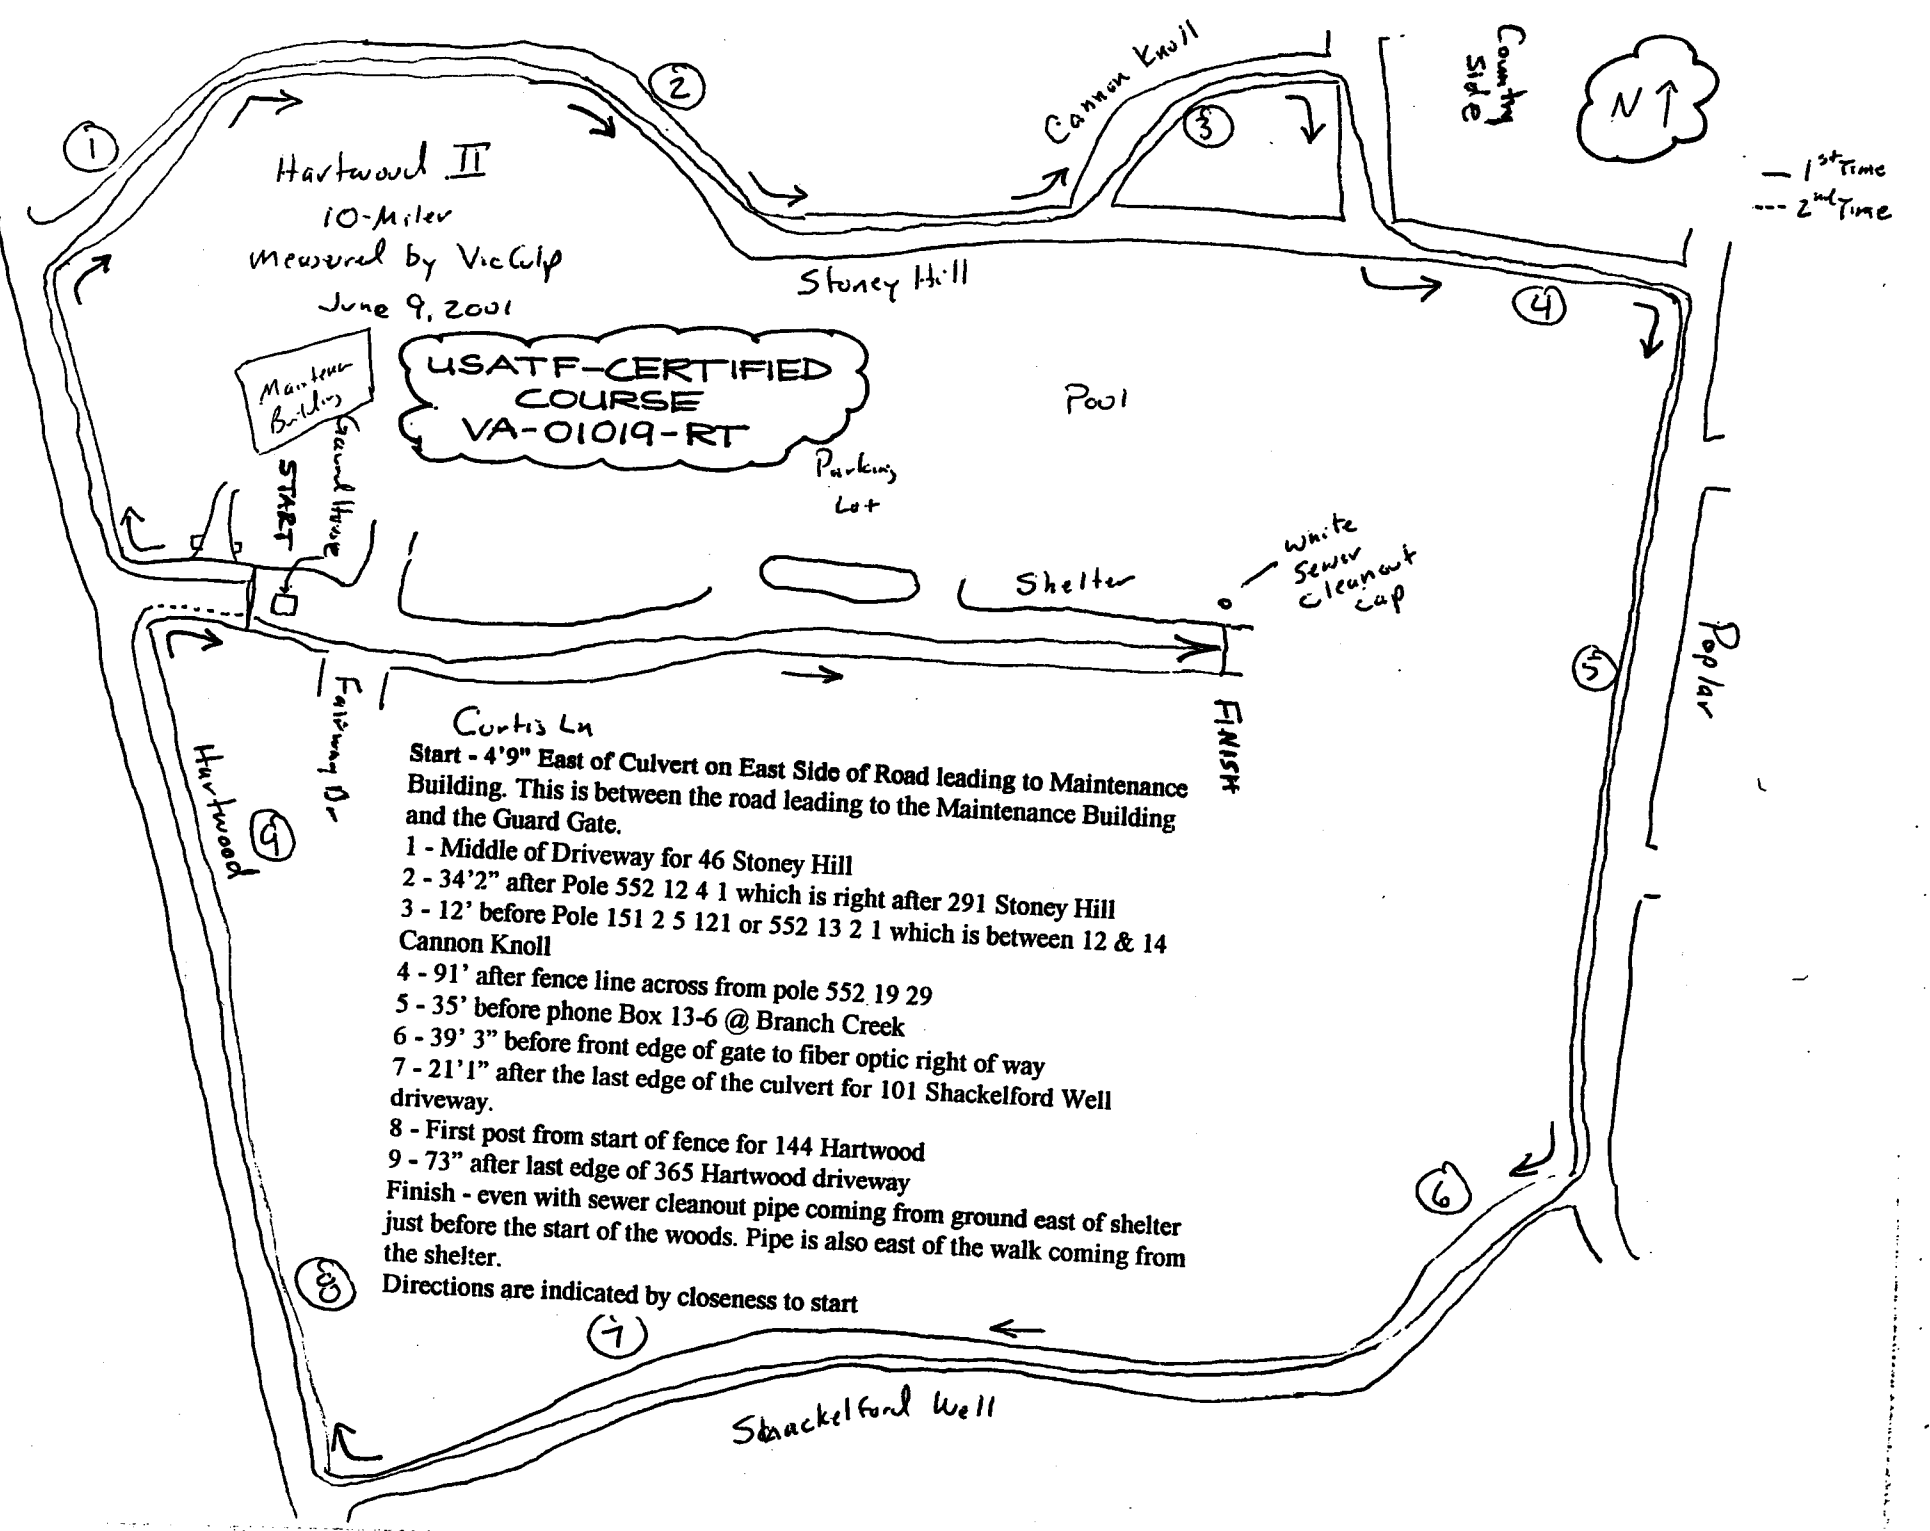 Cannon Knoll
Country
Side
N
1st Time
2nd Time
1
2
3
Hartwood II
10-Miler
Measured by Vic Culp
June 9, 2001
Stoney Hill
4
USATF-CERTIFIED
COURSE
VA-01019-RT
Building
Pool
Parking
Lot
START
Guard House
White
Sewer
cleanout
cap
Shelter
Poplar
5
Fairway Dr
FINISH
Curtis Ln
Hartwood
9
Start - 4'9" East of Culvert on East Side of Road leading to Maintenance
Building. This is between the road leading to the Maintenance Building
and the Guard Gate.
1 - Middle of Driveway for 46 Stoney Hill
2 - 34'2" after Pole 552 12 4 1 which is right after 291 Stoney Hill
3 - 12' before Pole 151 2 5 121 or 552 13 2 1 which is between 12 & 14
Cannon Knoll
4 - 91' after fence line across from pole 552 19 29
5 - 35' before phone Box 13-6 @ Branch Creek
6 - 39' 3" before front edge of gate to fiber optic right of way
7 - 21'1" after the last edge of the culvert for 101 Shackelford Well
driveway.
8 - First post from start of fence for 144 Hartwood
9 - 73" after last edge of 365 Hartwood driveway
Finish - even with sewer cleanout pipe coming from ground east of shelter
just before the start of the woods. Pipe is also east of the walk coming from
the shelter.
Directions are indicated by closeness to start
6
8
7
Shackelford Well